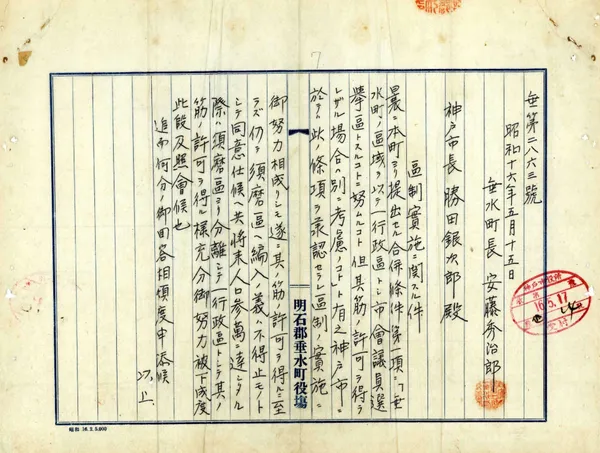 垂第二八六三號
昭和十六年五月十五日
垂水町長 安藤秀治郎
神戸市長 勝田銀次郎 殿
區制實施ニ関スル件
曩ニ本町ヨリ提出セル合併條件第一項ニ「垂
水町ノ區域ヲ以テ一行政區トシ市會議員選
擧區トスルコトニ努ムルコト但其筋ノ許可ヲ得ラ
レザル場合ハ別ニ考慮ノコト」ト有之神戸市ニ
於テハ此ノ條項ヲ承認セラレ區制ノ實施ニ
御努力相成リシモ遂ニ其ノ筋ノ許可ヲ得ルニ至
ラズ仍テ須磨區ヘ編入ノ義ハ不得止モノト
シテ同意仕候ヘ共將来人口参萬ニ達シタル
際ハ須磨區ヨリ分離シテ一行政區トシテ其ノ
筋ノ許可ヲ得ル様充分御努力被下成度
此段及照會候也
追而何分ノ御回答相煩度申添候
以上
明石郡垂水町役場
神戸市役所
16.5.17
昭和 16.2.5,000
7